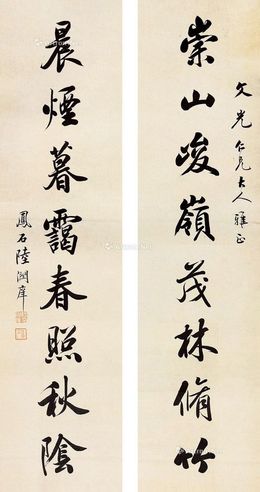 文光仁兄大人雅正
崇山峻嶺茂林脩竹
晨煙暮靄春照秋陰
鳳石陸潤庠